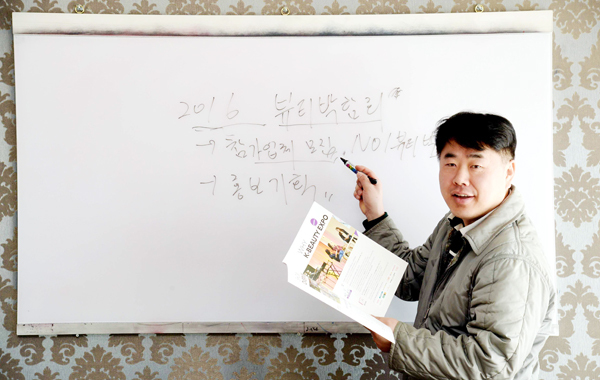 2016 뷰티박람회
→ 참가업체 모집. NO1 뷰티박
→ 홍보기획
K-BEAUTY EXPO